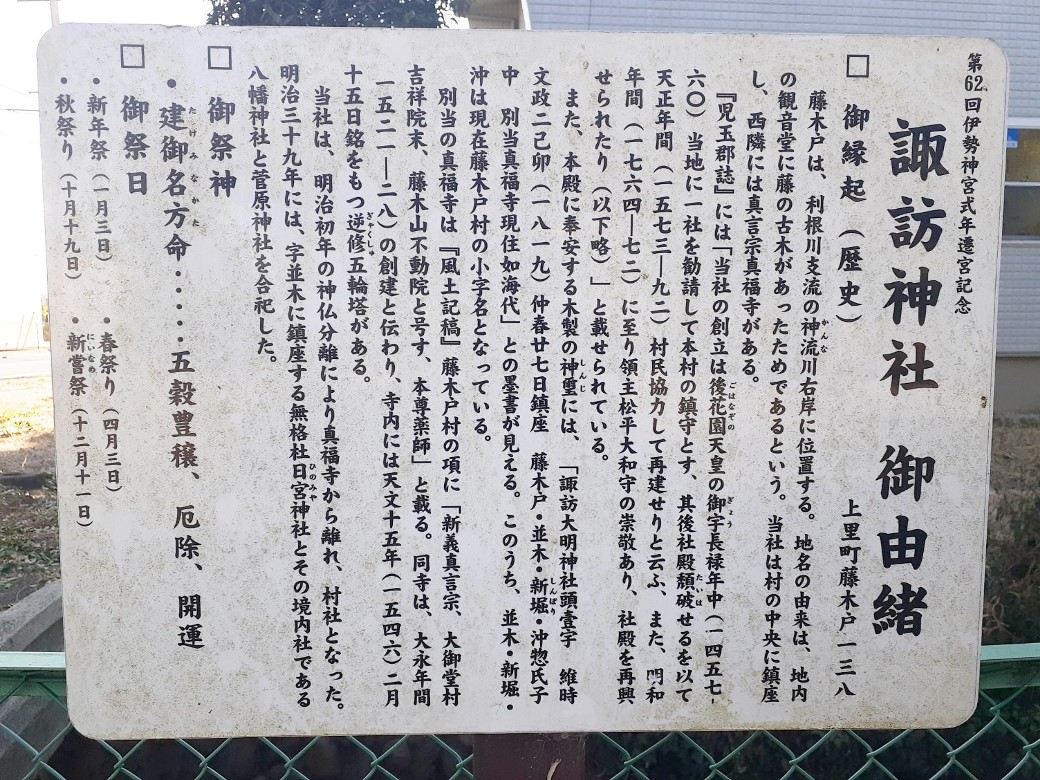 第62回伊勢神宮式年遷宮記念
諏訪神社　御由緒
上里町藤木戸一三八
□　御縁起（歴史）
藤木戸は、利根川支流の神流川右岸に位置する。地名の由来は、地内
の観音堂に藤の古木があったためであるという。当社は村の中央に鎮座
し、西隣には真言宗真福寺がある。
『児玉郡誌』には「当社の創立は後花園天皇の御宇長禄年中（一四五七-
六〇）当地に一社を勧請して本村の鎮守とす、其後社殿頽破せるを以て
天正年間（一五七三―九二）村民協力して再建せりと云ふ、また、明和
年間（一七六四―七二）に至り領主松平大和守の崇敬あり、社殿を再興
せられたり（以下略）」と載せられている。
また、本殿に奉安する木製の神璽には、「諏訪大明神社頭壹宇　維時
文政二己卯（一八一九）仲春廿七日鎮座　藤木戸・並木・新堀・沖惣氏子
中　別当真福寺現住如海代」との墨書が見える。このうち、並木・新堀・
沖は現在藤木戸村の小字名となっている。
別当の真福寺は『風土記稿』藤木戸村の項に「新義真言宗、大御堂村
吉祥院末、藤木山不動院と号す、本尊薬師」と載る。同寺は、大永年間
（一五二一―二八）の創建と伝わり、寺内には天文十五年（一五四六）二月
十五日銘をもつ逆修五輪塔がある。
当社は、明治初年の神仏分離により真福寺から離れ、村社となった。
明治三十九年には、字並木に鎮座する無格社日宮神社とその境内社である
八幡神社と菅原神社を合祀した。
□　御祭神
・建御名方命・・・・・五穀豊穣、厄除、開運
□　御祭日
・新年祭（一月三日）　・春祭り（四月三日）
・秋祭り（十月十九日）　・新嘗祭（十二月十一日）
かんな
ごはなぞの
ぎょう
たいは
しんじ
しんぼり
ぎゃくしゅ
ひのみや
たけみなかた
にいなめ